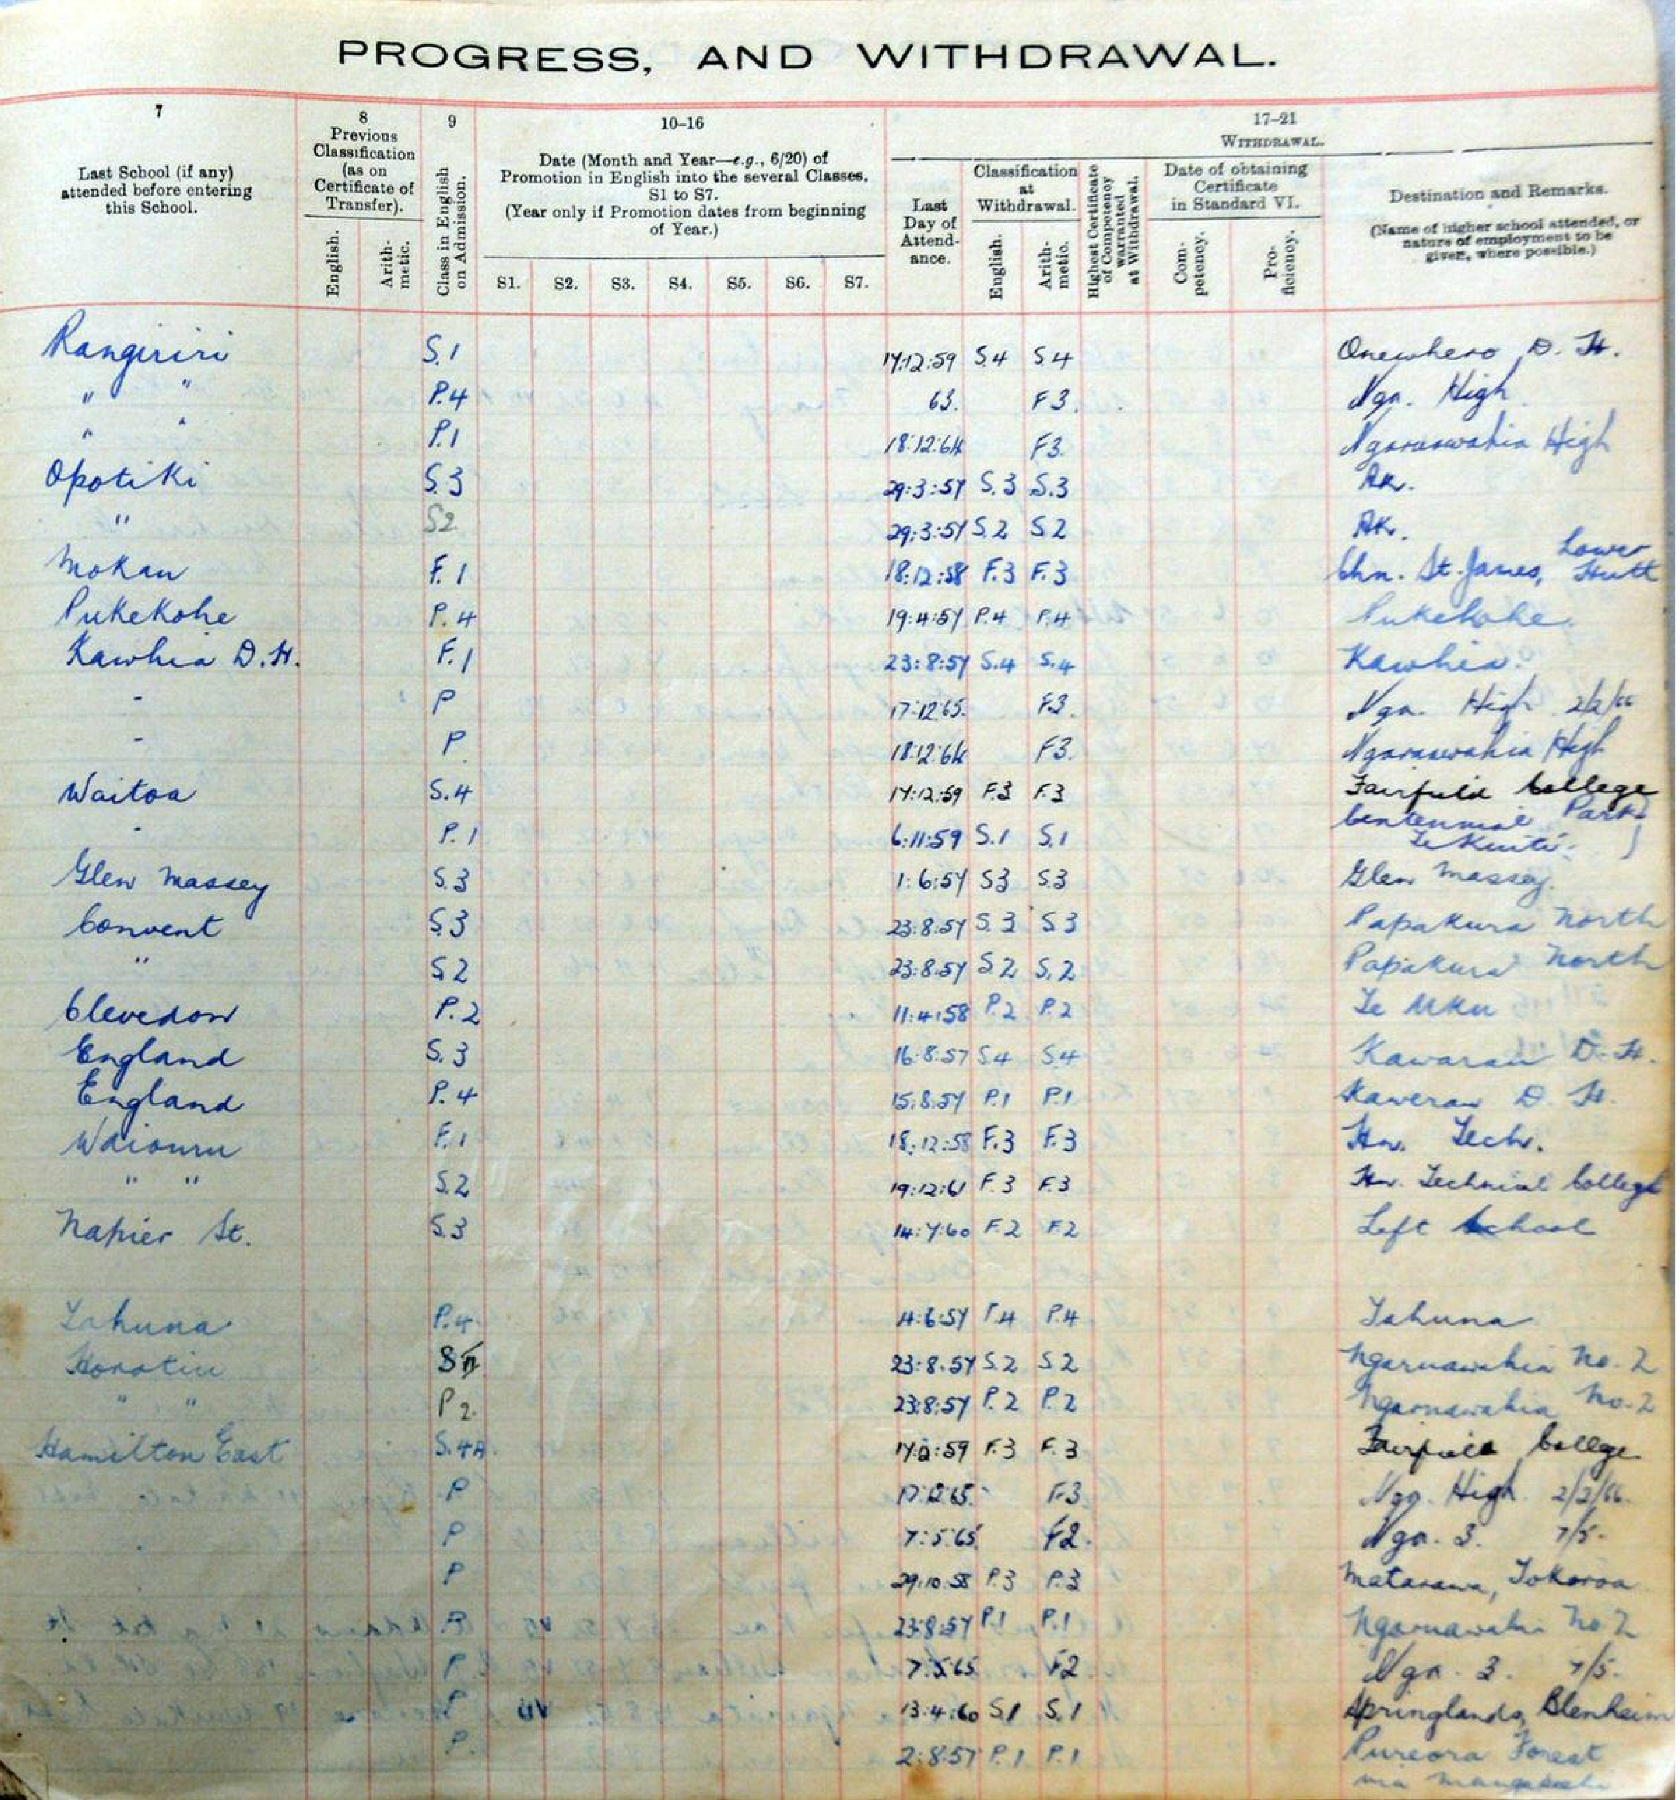 PROGRESS, AND WITHDRAWAL.
7
Last School (if any)
attended before entering
this School.
8
Previous
Classification
(as on
Certificate of
Transfer).
English.
Arith-
metic.
9
Class in English
on Admission.
10–16
Date (Month and Year—e.g., 6/20) of
Promotion in English into the several Classes,
S1 to S7.
(Year only if Promotion dates from beginning
of Year.)
S1. S2. S3. S4. S5. S6. S7.
17–21
WITHDRAWAL.
Last
Day of
Attend-
ance.
Classification
at
Withdrawal.
English.
Arith-
metic.
Highest Certificate
of Competency
warranted
at Withdrawal.
Date of obtaining
Certificate
in Standard VI.
Com-
petency.
Pro-
ficiency.
Destination and Remarks.
(Name of higher school attended, or
nature of employment to be
given, where possible.)
Rangiriri S.1 17:12:59 S.4 S4 Onewhero D. H.
" " P.4 63. F3. Nga. High
" " P.1 18:12:64 F3. Ngaruawahia High
Opotiki S.3 29:3:57 S.3 S.3 AK.
" S2 29:3:57 S.2 S2 AK.
Mokau F.1 18:12:58 F.3 F.3 Chn. St. James, Lower Hutt
Pukekohe P.4 19:4:57 P.4 P.4 Pukekohe.
Kawhia D.H. F.1 23:8:57 S.4 S.4 Kawhia.
- P 17:12:65. F3. Nga. High 2/2/66
- P. 18:12:64 F3. Ngaruawahia High
Waitoa S.4 17:12:59 F.3 F.3 Fairfield College
- P.1 6:11:59 S.1 S.1 Centennial Park
Te Kuiti.
Glen Massey S.3 1:6:57 S3 S.3 Glen Massey.
Convent S.3 23:8:57 S.3 S3 Papakura North
" S.2 23:8:57 S2 S.2 Papakura North
Clevedon P.2 11:4:58 P.2 P.2 Te Uku
England S.3 16:8:57 S4 S4 Kawarau D. H.
England P.4 15:8:57 P.1 P.1 Kawerau D. H.
Waiouru F.1 18:12:58 F.3 F.3 Hn. Tech.
" " S.2 19:12:61 F.3 F.3 Hn. Technical College
Napier St. S.3 14:7:60 F.2 F2 Left School
Tahuna P.4 14:6:57 P.4 P.4 Tahuna
Horotiu 23:8:57 S.2 S2 Ngaruawahia No. 2
" " P2. 23:8:57 P.2 P.2 Ngaruawahia No. 2
Hamilton East S.4A. 17:12:59 F.3 F.3 Fairfield College
P 17:12:65. F.3 Nga. High 2/2/66.
P 7:5:65 F2. Nga. 3. 7/5.
P 29:10:58 P.3 P.3 Matarawa, Tokoroa
P. 23:8:57 P.1 P.1 Ngaruawahia No 2
P. 7:5:65 F2 Nga. 3. 7/5.
P 13:4:60 S.1 S.1 Springlands, Blenheim
P. 2:8:57 P.1 P.1 Pureora Forest
via